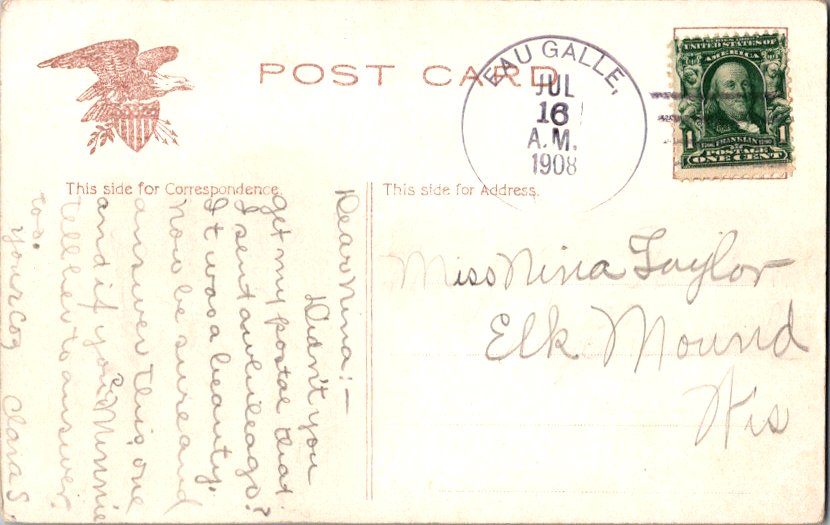 POST CARD
EAU GALLE,
JUL
16
A.M.
1908
UNITED STATES OF
AMERICA
1 FRANKLIN 1
POSTAGE
ONE CENT
This side for Correspondence.
This side for Address.
Dear Nina:—
Didn't you
get my postal that
I sent awhile ago?
It was a beauty.
Now be sure and
answer this one
and if you Minnie
tell her to answer
too.
Your Coz Clara S.
Miss Nina Taylor
Elk Mound
Wis